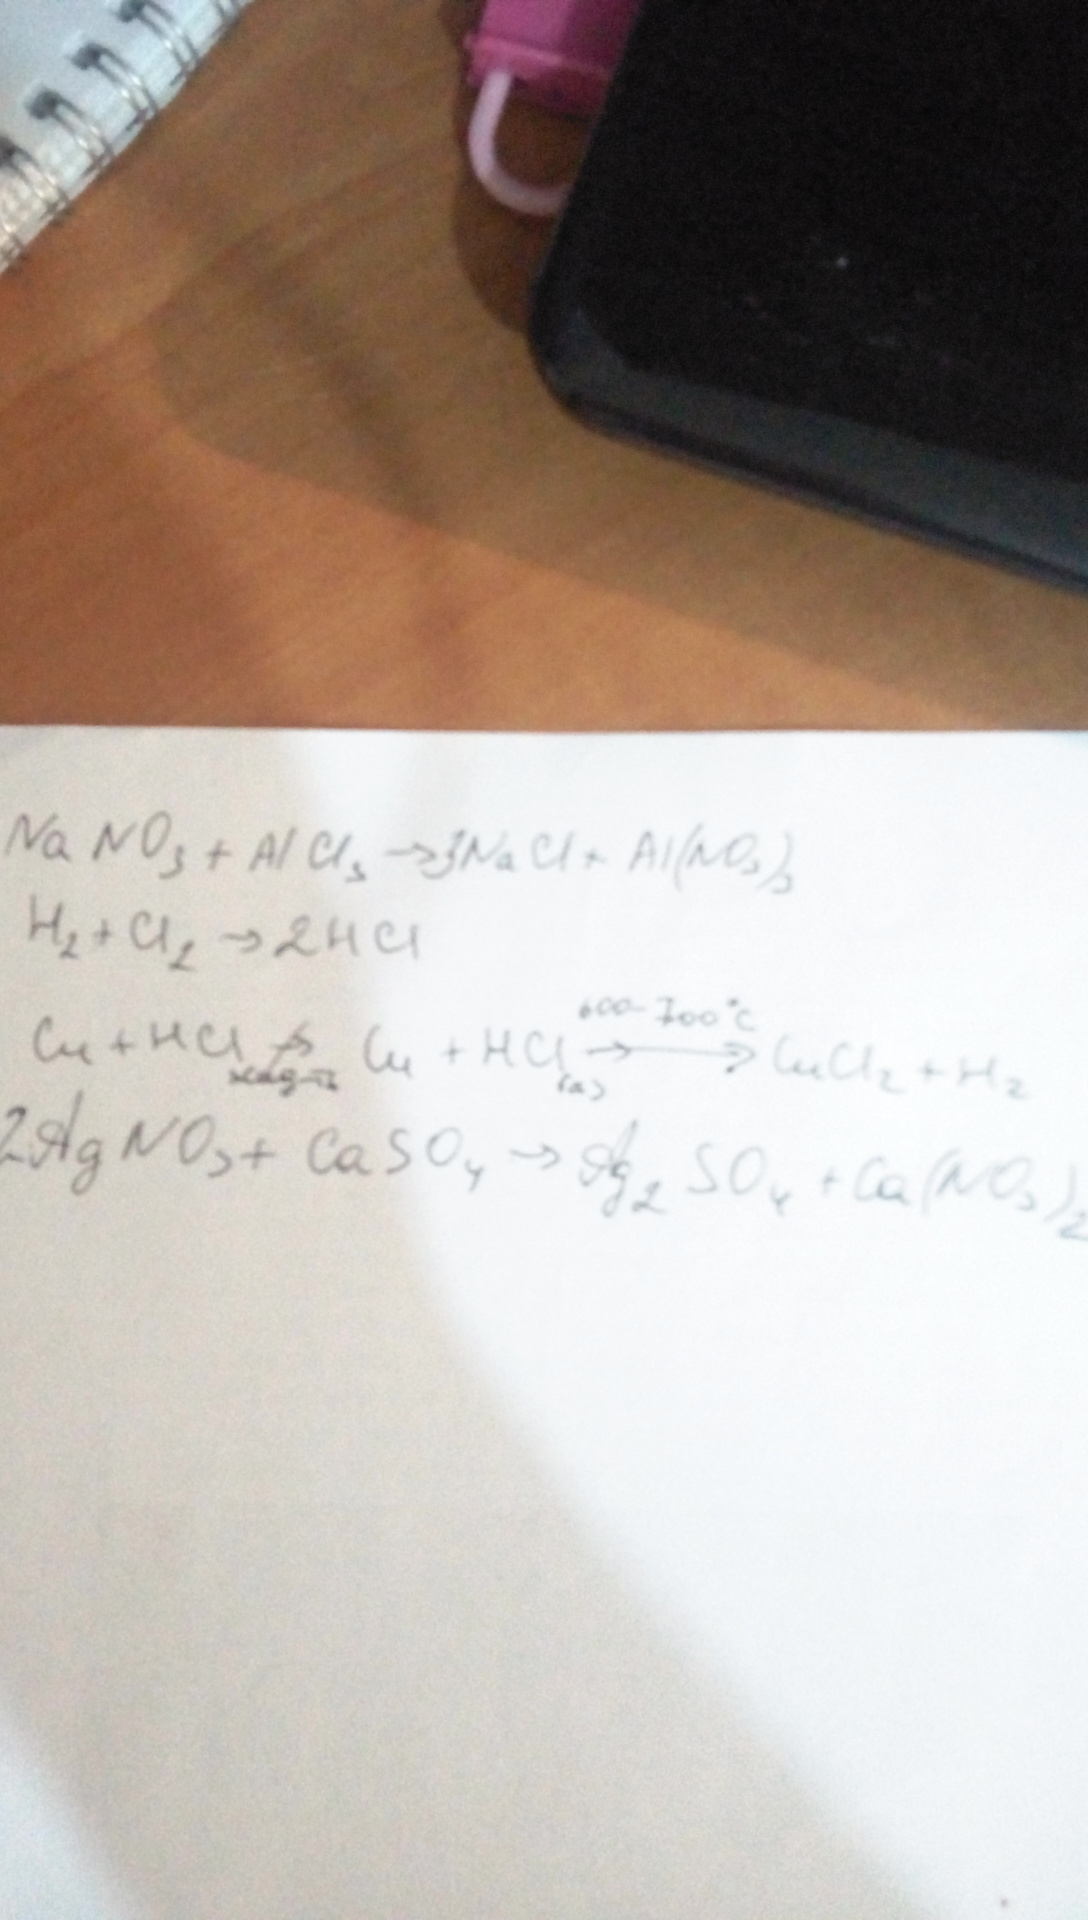 NaNO₃ + AlCl₃ → 3NaCl + Al(NO₃)₃
H₂ + Cl₂ → 2HCl
600-700°C
Cu + HCl ↛ Cu + HCl → CuCl₂ + H₂
2AgNO₃ + CaSO₄ → Ag₂SO₄ + Ca(NO₃)₂